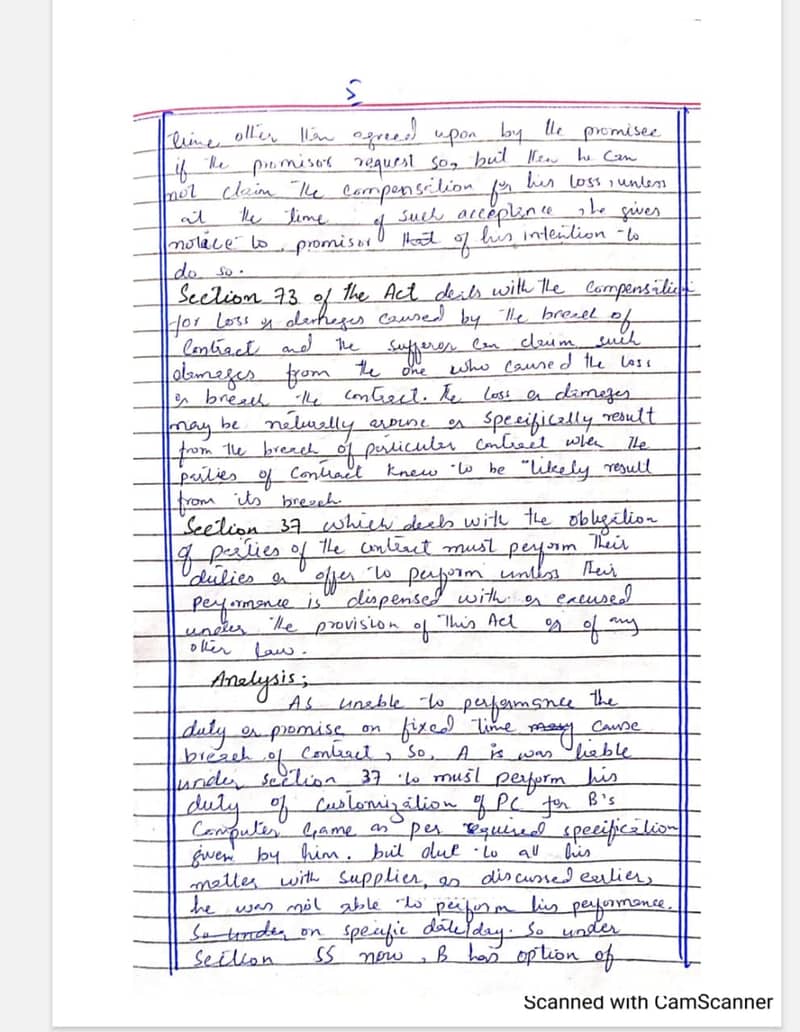 5
time other than agreed upon by the promisee
if the promisor request so, but then he can
not claim the compensation for his loss, unless
at the time of such acceptance, he gives
notice to promisor that of his intention to
do so.
Section 73 of the Act deals with the compensation
for loss or damages caused by the breach of
contract and the sufferer can claim such
damages from the one who caused the loss
or breach the contract. The loss or damages
may be naturally arouse or specifically result
from the breach of particular contract when the
parties of contract knew to be "likely result
from its breach
Section 37 which deals with the obligation
of parties of the contract must perform their
duties or offer to perform unless their
performance is dispensed with or excused
under the provision of This Act or of any
other law.
Analysis;
As unable to performance the
duty or promise on fixed time may cause
breach of contract, so, A is was liable
under section 37 to must perform his
duty of customization of PC for B's
Computer Game as per required specification
given by him. but due to all his
matter with supplier, as discussed earlier,
he was not able to perform his performance.
So under on specific date/day. So under
Section 55 now, B has option of
Scanned with CamScanner